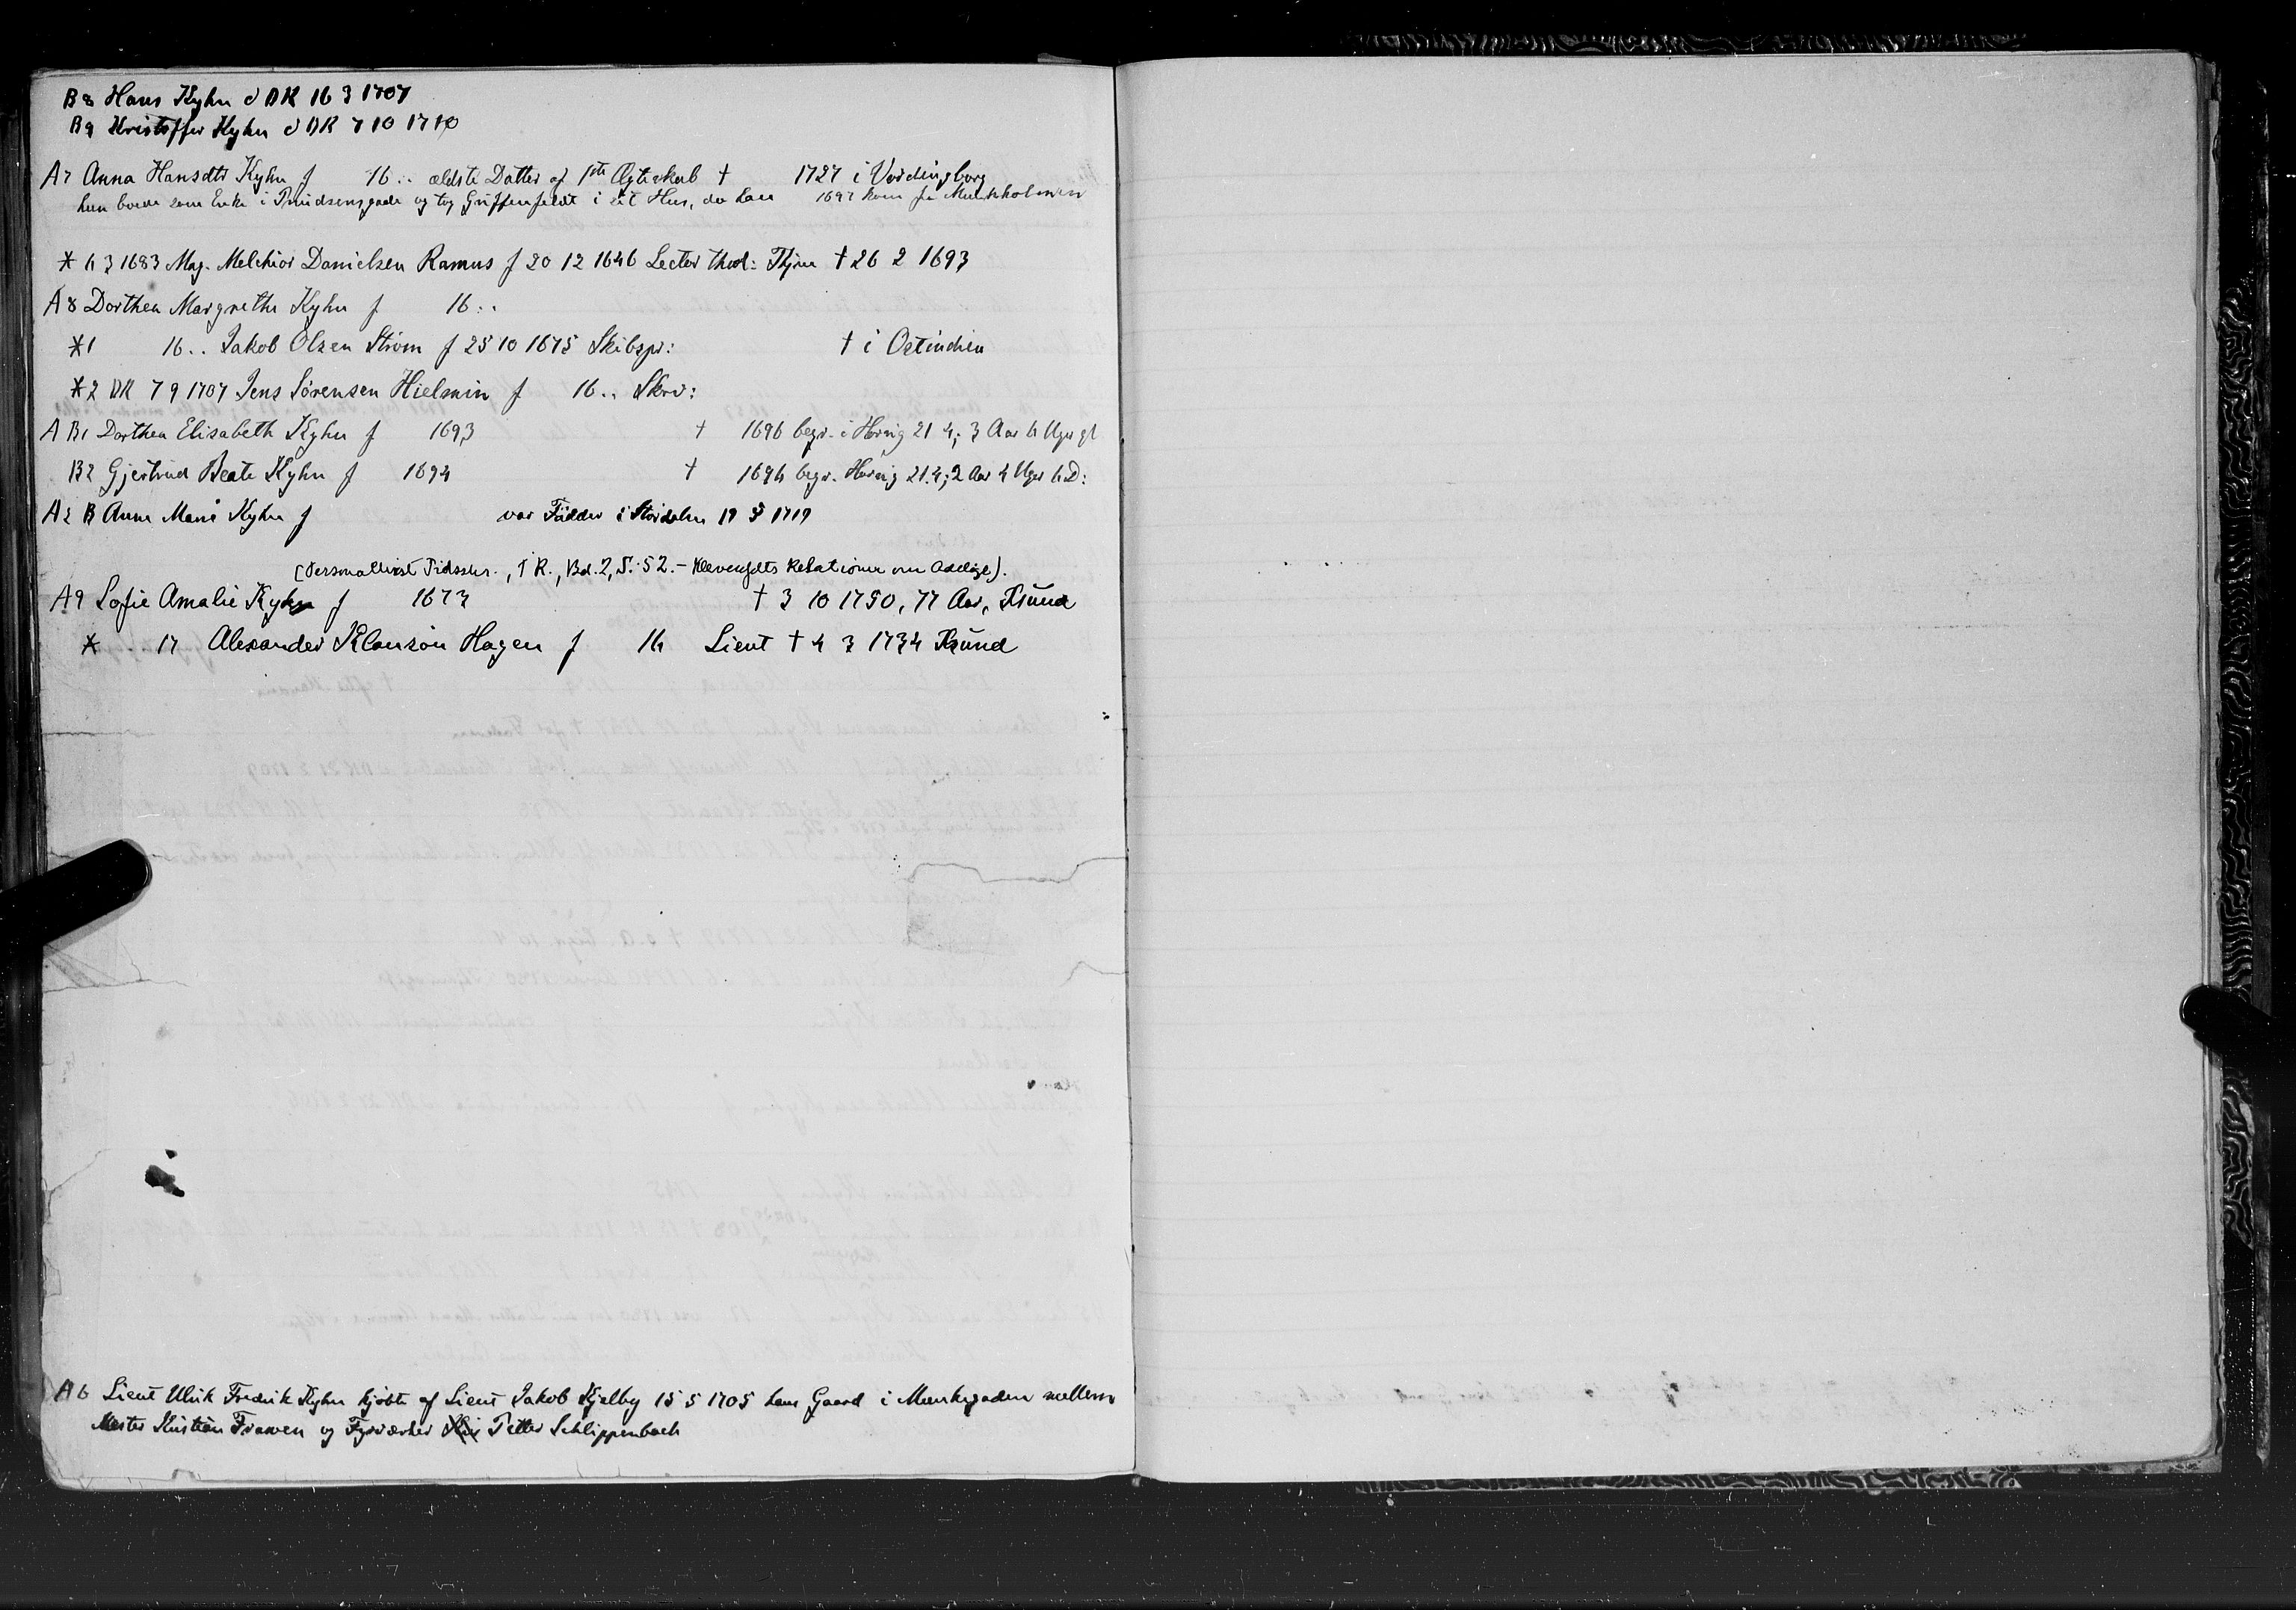 B8 Hans Kyhn d DK 16 3 1707
B9 Kristoffer Kyhn d DK 7 10 1710
A7 Anna Hansdtr Kyhn f 16.. ældste Datter af 1ste Ægteskab † 1727 i Vordingborg
hun boede som Enke i Prindsensgade og tog Griffenfeldt i sit Hus, da han 1697 kom fra Munkholmen
* 6 3 1683 Mag. Melchior Danielsen Ramus f 20 12 1646 Lector theol: Thjem † 26 2 1693
A8 Dorthea Margrethe Kyhn f 16..
*1 16.. Jakob Olsen Strøm f 25 10 1675 Skibspr: † i Ostindien
*2 DK 7 9 1707 Jens Sørensen Hielmin f 16.. Skrv:
A B1 Dorthea Elisabeth Kyhn f 1693 † 1696 begr. i Horrig 21 4; 3 Aar 6 Uger gl
B2 Gjertrud Beate Kyhn f 1694 † 1696 begr. Horrig 21.4; 2 Aar 4 Uger 6 D:
A2 B Anne Marie Kyhn f var Fadder i Størdalen 19 5 1719
(Personalhist Tidsskr., 1 R., Bd. 2, S. 52. - Klevenfeldts Relationer om Adelige).
A9 Sofie Amalie Kyhn f 1673 † 3 10 1750, 77 Aar, Trund
* .. 17 Alexander Klauson Hagen f 16 Lieut † 4 3 1734 Trund
A6 Lieut Ulrik Fredrik Kyhn kjøbte af Lieut Jakob Kjelby 15 5 1705 hans Gaard i Munkegaden mellem
Mester Kristian Frawen og Fyrværker Petter Schlippenbach